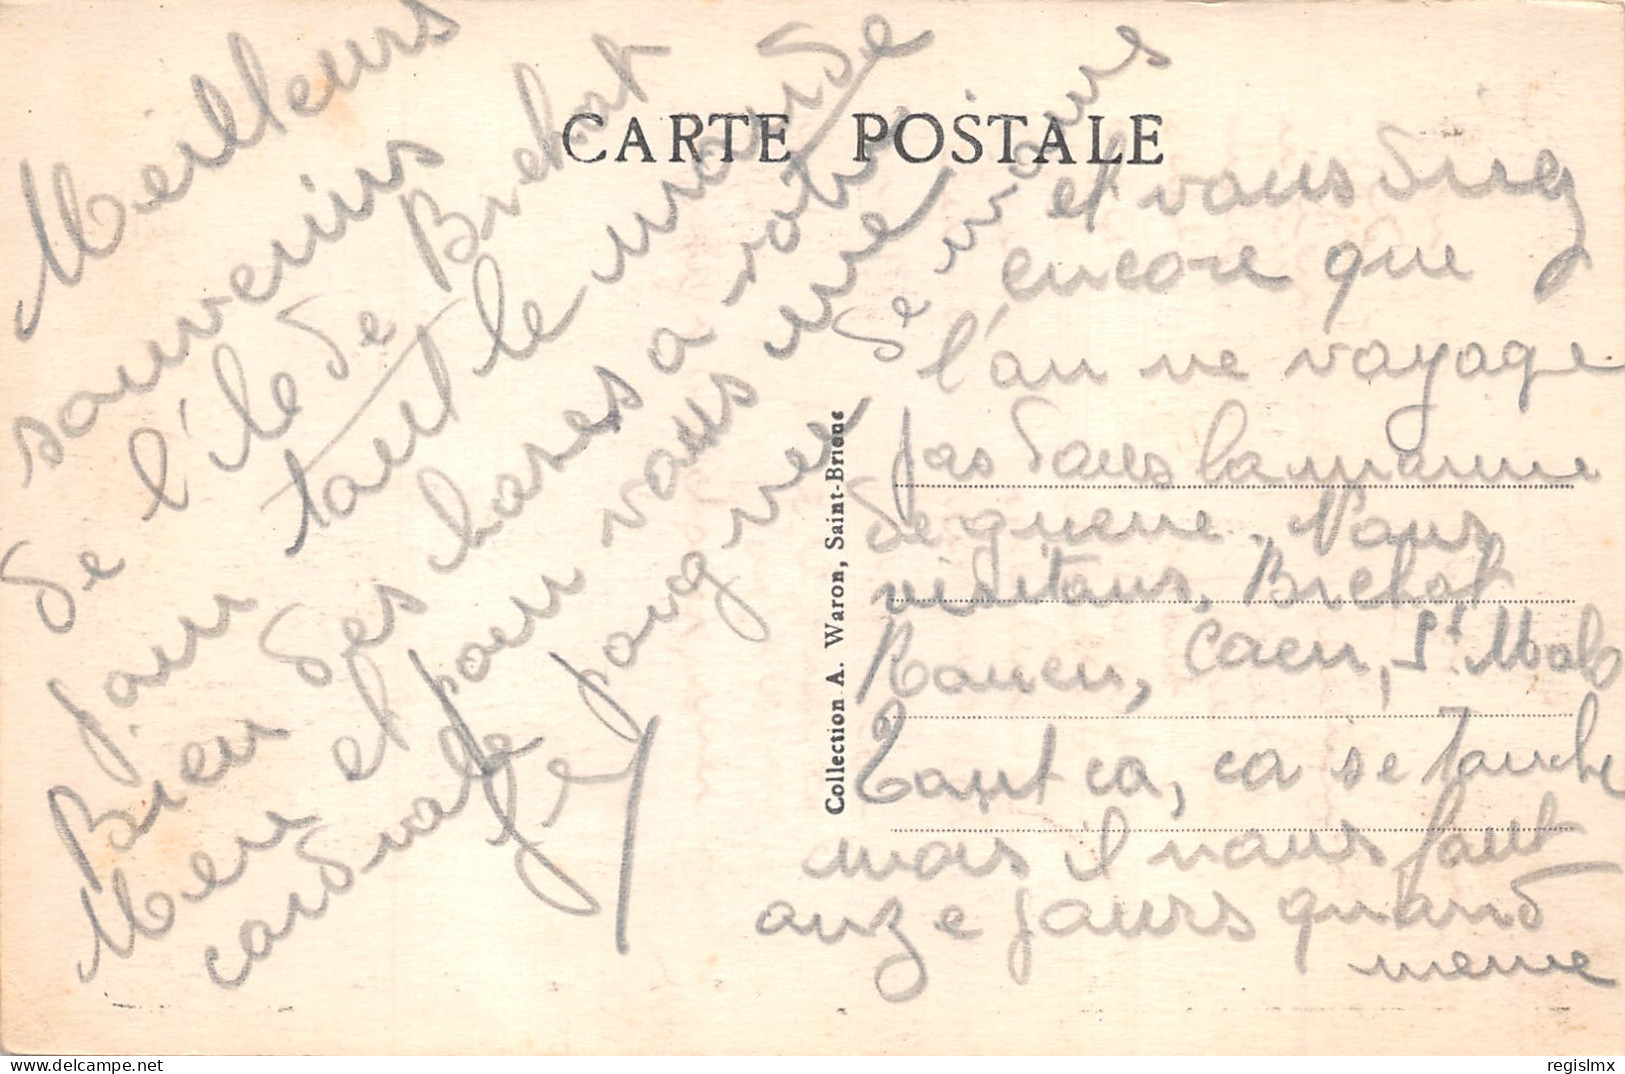 CARTE POSTALE
Meilleurs
souvenirs
de l'île de Brehat
pour tout le monde
Bien des choses a votre
Mere et pour vous une
cordiale poignee
de mains
et vous direz
encore que
l'on ne voyage
pas dans la marine
de guerre. Nous
visitons, Brehat
Rouen, Caen, St Malo
Tout ca, ca se touche
mais il nous faut
onze jours quand
meme
Collection A. Waron, Saint-Brieuc
delcampe.net
regislmx